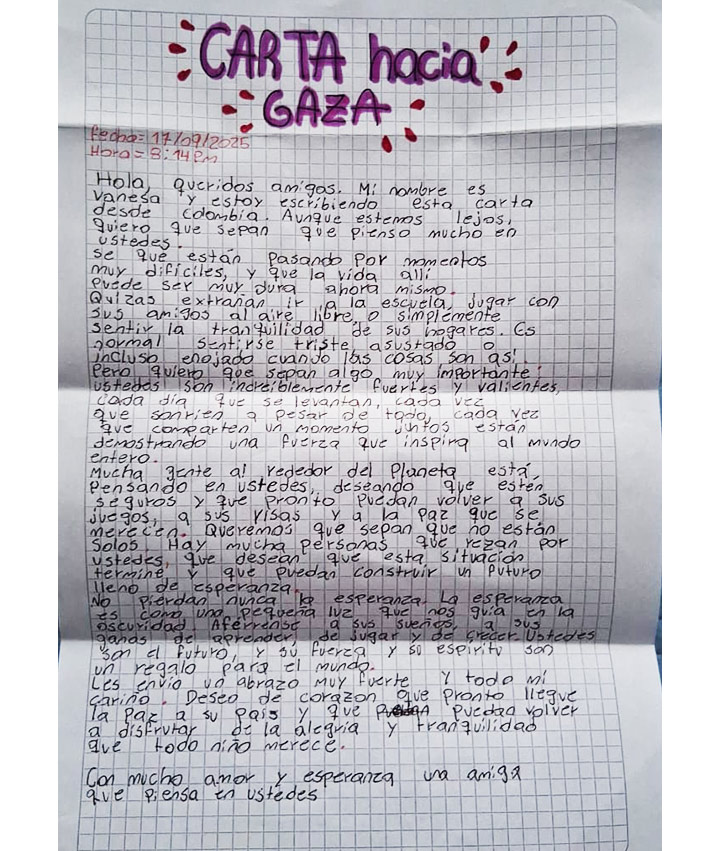 CARTA hacia
GAZA
Fecha= 17/09/2025
Hora= 8:14 Pm
Hola, queridos amigos. Mi nombre es
Vanesa y estoy escribiendo esta carta
desde colombia. Aunque estemos lejos,
quiero que sepan que pienso mucho en
ustedes.
se que están pasando por momentos
muy difíciles, y que la vida allí
puede ser muy dura ahora mismo.
Quizas extrañan ir a la escuela, jugar con
sus amigos al aire libre, o simplemente
sentir la tranquilidad de sus hogares. Es
normal sentirse triste, asustado o
incluso enojado cuando las cosas son así.
Pero quiero que sepan algo muy importante:
ustedes son increíblemente fuertes y valientes,
cada día que se levantan, cada vez
que sonríen a pesar de todo, cada vez
que comparten un momento juntos están
demostrando una fuerza que inspira al mundo
entero.
Mucha gente al rededor del Planeta está
Pensando en ustedes, deseando que estén
seguros y que pronto puedan volver a sus
juegos, a sus risas y a la paz que se
merecen. Queremos que sepan que no están
Solos. Hay mucha personas que rezan por
ustedes, que desean que esta situación
termine y que puedan construir un futuro
lleno de esperanza.
No pierdan nunca la esperanza. La esperanza
es como una pequeña luz que nos guía en la
oscuridad. Aférrense a sus sueños, a sus
ganas de aprender, de jugar y de crecer. Ustedes
son el futuro, y su fuerza y su espíritu son
un regalo para el mundo.
Les envío un abrazo muy fuerte y todo mi
cariño. Deseo de corazon que pronto llegue
la paz a su país y que puedan volver
a disfrutar de la alegría y tranquilidad
que todo niño merece.
Con mucho amor y esperanza una amiga
que piensa en ustedes